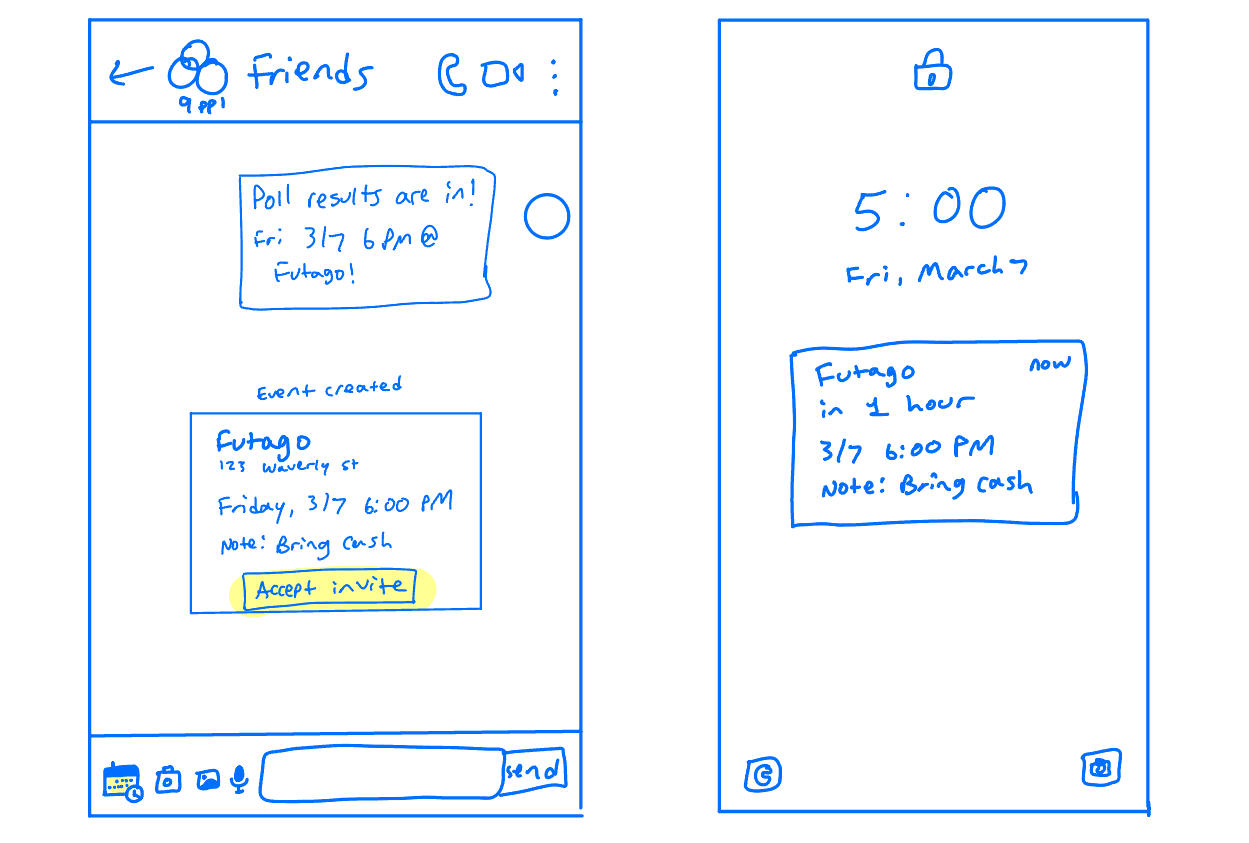 Friends
9 ppl
Poll results are in!
Fri 3/7 6 PM @
Futago!
Event created
Futago
123 Waverly st
Friday, 3/7 6:00 PM
Note: Bring cash
Accept invite
send
5:00
Fri, March 7
Futago now
in 1 hour
3/7 6:00 PM
Note: Bring cash